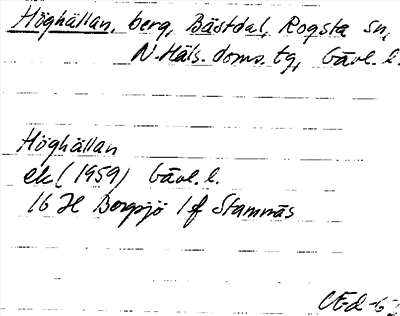 Höghällan, berg, Bästdal, Rogsta sn,
N. Häls. doms. tg, Gävl. l.
Höghällan
ek (1959) Gävl. l.
16 H Bergsjö 1 f Stamnäs